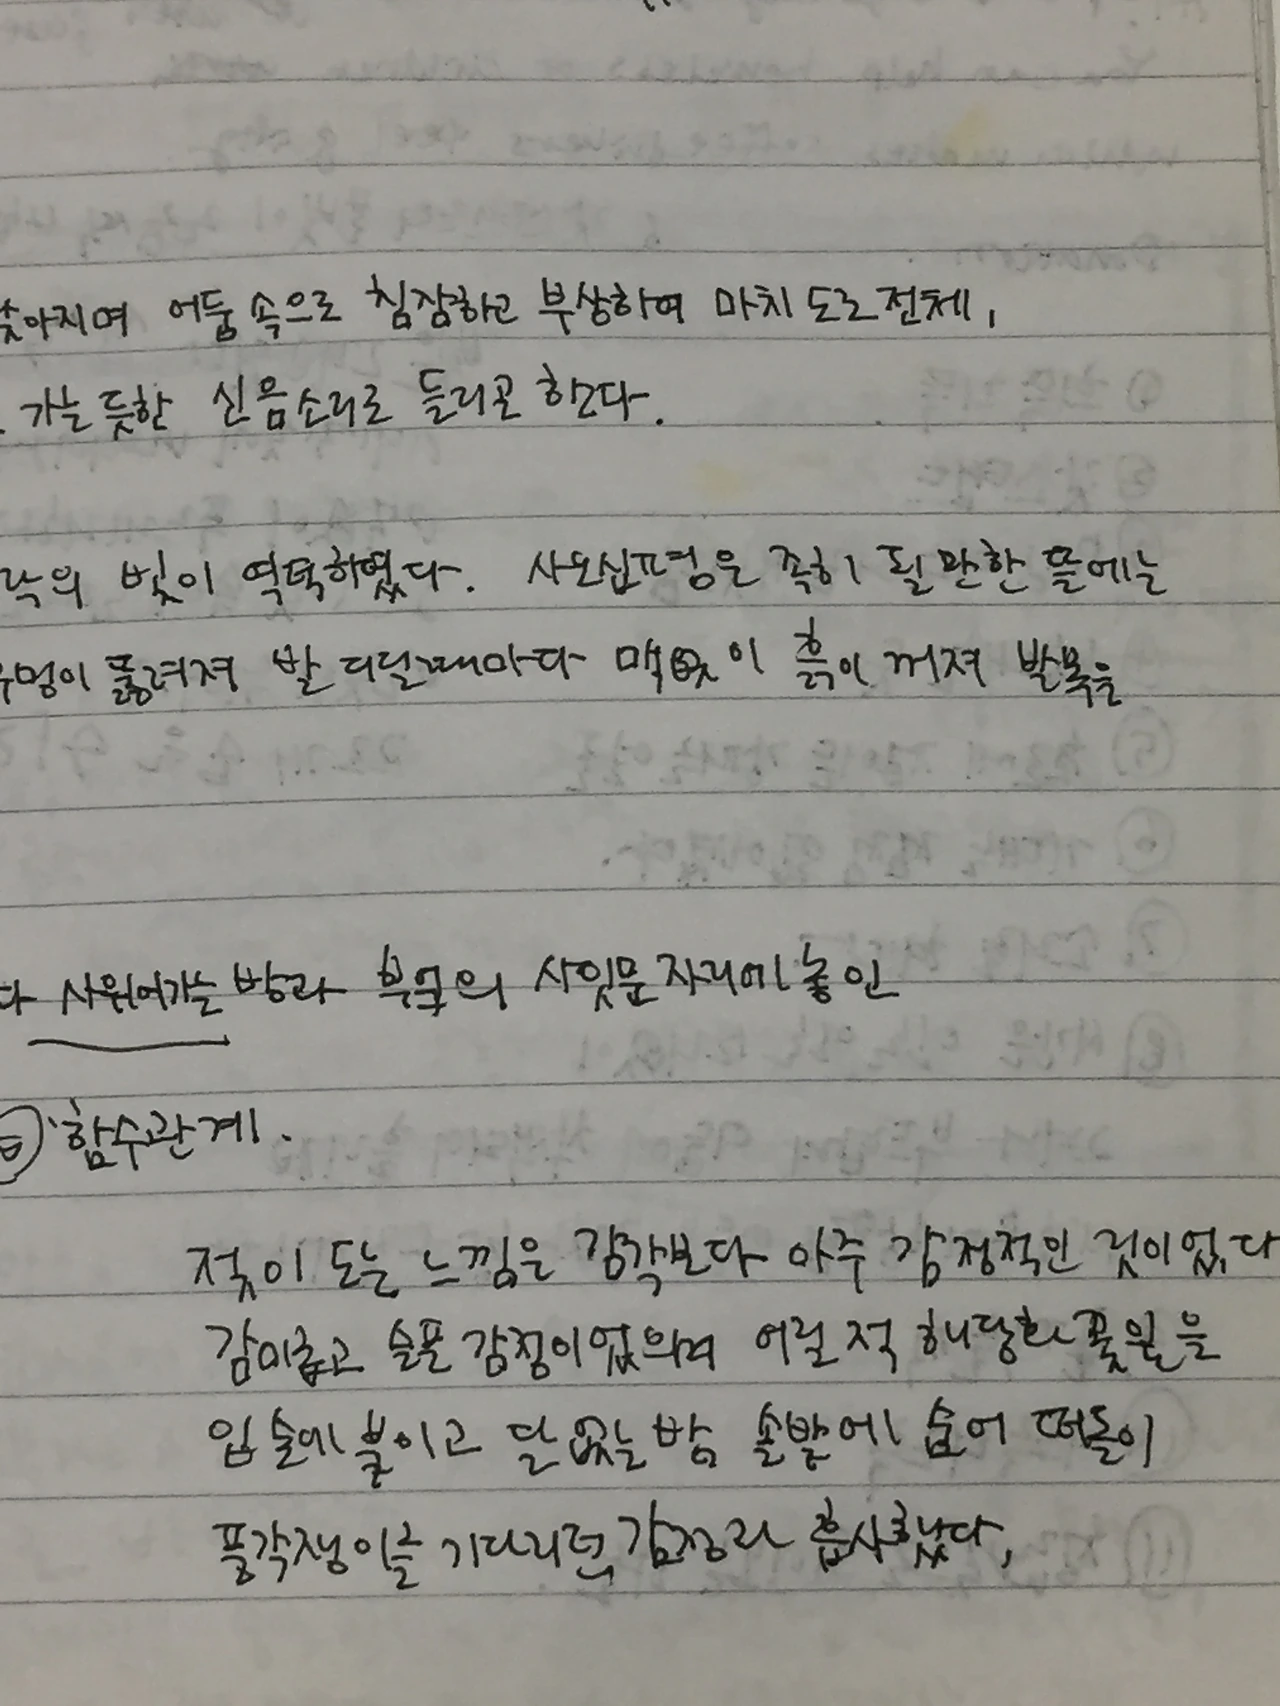 낮아지며 어둠 속으로 침잠하고 부상하여 마치 도로 전체,
가는 듯한 신음소리로 들리곤 한다.
락의 빛이 역력하였다. 사오십평은 족히 될 만한 뜰에는
구멍이 뚫려져 발 디딜때마다 맥없이 흙이 꺼져 발목을
다 사위어가는 방과 부엌의 사잇문 자리에 놓인
함수관계.
젖이 도는 느낌은 감각보다 아주 감정적인 것이었다
감미롭고 슬픈 감정이었으며 어릴 적 해당화 꽃잎을
입술에 붙이고 달 없는 밤 솔밭에 숨어 떠돌이
풍각쟁이를 기다리던 감정과 흡사했다,